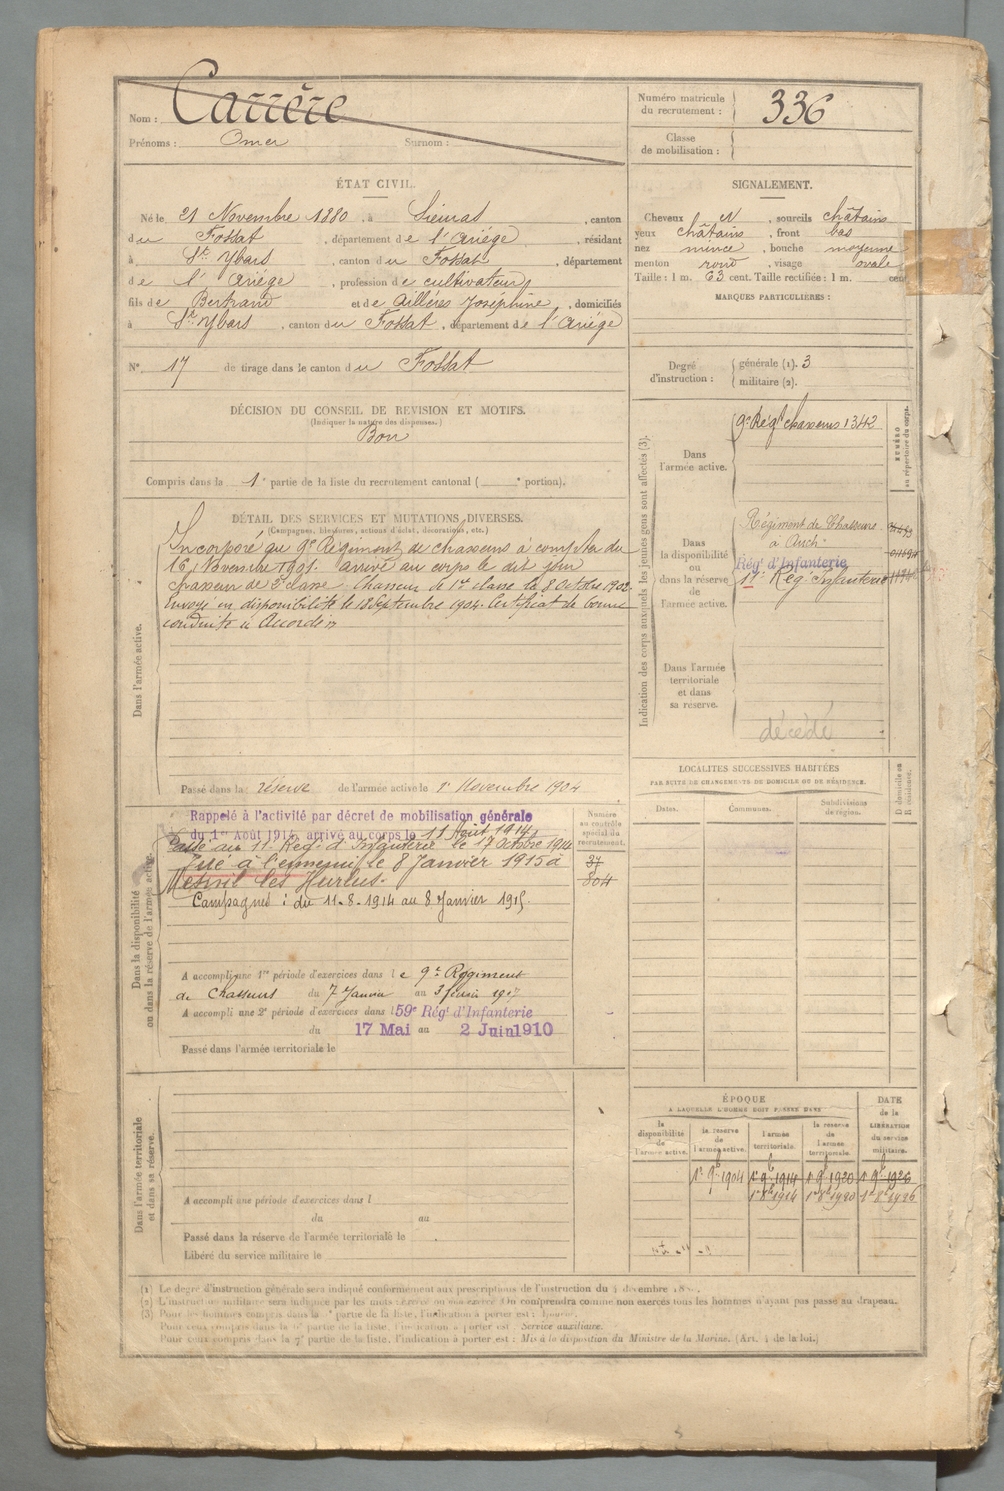 Nom : Carrère
Prénoms : Omer Surnom :
Numéro matricule du recrutement : 336
Classe de mobilisation :
ÉTAT CIVIL.
Né le 21 Novembre 1880, à Siéuras, canton
du Fossat, département de l'Ariège, résidant
à St Ybars, canton du Fossat, département
de l'Ariège, profession de cultivateur
fils de Bertrand et de Aillères Joséphine, domiciliés
à St Ybars, canton du Fossat, département de l'Ariège
N° 17 de tirage dans le canton du Fossat
SIGNALEMENT.
Cheveux et, sourcils châtains
yeux châtains, front bas
nez mince, bouche moyenne
menton rond, visage ovale
Taille : 1 m. 63 cent. Taille rectifiée : 1 m. cent
MARQUES PARTICULIÈRES :
Degré d'instruction : générale (1). 3
militaire (2).
DÉCISION DU CONSEIL DE REVISION ET MOTIFS.
(Indiquer la nature des dispenses.)
Bon
Compris dans la 1e partie de la liste du recrutement cantonal ( e portion).
DÉTAIL DES SERVICES ET MUTATIONS DIVERSES.
(Campagnes, blessures, actions d'éclat, décorations, etc.)
Dans l'armée active.
Incorporé au 9e Régiment de chasseurs à compter du
16 Novembre 1901. arrivé au corps le dit jour
chasseur de 2e classe. Chasseur de 1re classe le 8 Octobre 1902
Envoyé en disponibilité le 18 Septembre 1904. Certificat de bonne
conduite "Accordé"
Passé dans la réserve de l'armée active le 1er Novembre 1904
Indication des corps auxquels les jeunes gens sont affectés (3).
NUMÉRO au répertoire du corps.
Dans l'armée active.
9e Régt chasseurs 1342
Dans la disponibilité ou dans la réserve de l'armée active.
Régiment de Chasseurs
à Auch
Régt d'Infanterie
11e Rég. Infanterie
Dans l'armée territoriale et dans sa réserve.
décédé
Dans la disponibilité ou dans la réserve de l'armée active.
Rappelé à l'activité par décret de mobilisation générale
du 1er Août 1914, arrivé au corps le 11 Août 1914.
Passé au 11e Régt d'Infanterie le 17 Octobre 1914
Tué à l'ennemi le 8 Janvier 1915 à
Mesnil les Hurlus.
Campagnes : du 11-8-1914 au 8 Janvier 1915.
Numéro au contrôle spécial du recrutement.
37
804
A accompli une 1re période d'exercices dans le 9e Régiment
de Chasseurs du 7 Janvier au 3 février 1907
A accompli une 2e période d'exercices dans l 59e Régt d'Infanterie
du 17 Mai au 2 Juin 1910
Passé dans l'armée territoriale le
LOCALITÉS SUCCESSIVES HABITÉES
PAR SUITE DE CHANGEMENTS DE DOMICILE OU DE RÉSIDENCE.
Dates. Communes. Subdivisions de région. D domicile ou R résidence.
Dans l'armée territoriale et dans sa réserve.
A accompli une période d'exercices dans l
du au
Passé dans la réserve de l'armée territoriale le
Libéré du service militaire le
ÉPOQUE
A LAQUELLE L'HOMME DOIT PASSER DANS
la disponibilité de l'armée active. la réserve de l'armée active. l'armée territoriale. la réserve de l'armée territoriale.
DATE de la LIBÉRATION du service militaire.
1er 9b 1904 1er 9b 1914 1er 9b 1920 1er 9b 1926
1er 8b 1914 1er 8b 1920 1er 8b 1926
(1) Le degré d'instruction générale sera indiqué conformément aux prescriptions de l'instruction du 4 décembre
(2) L'instruction militaire sera indiquée par les mots exercé ou non exercé. On comprendra comme non exercés tous les hommes n'ayant pas passé au drapeau.
(3) Pour les hommes compris dans la partie de la liste, l'indication à porter est :
Pour ceux compris dans la partie de la liste, l'indication à porter est : Service auxiliaire.
Pour ceux compris dans la 7e partie de la liste, l'indication à porter est : Mis à la disposition du Ministre de la Marine. (Art. 4 de la loi.)